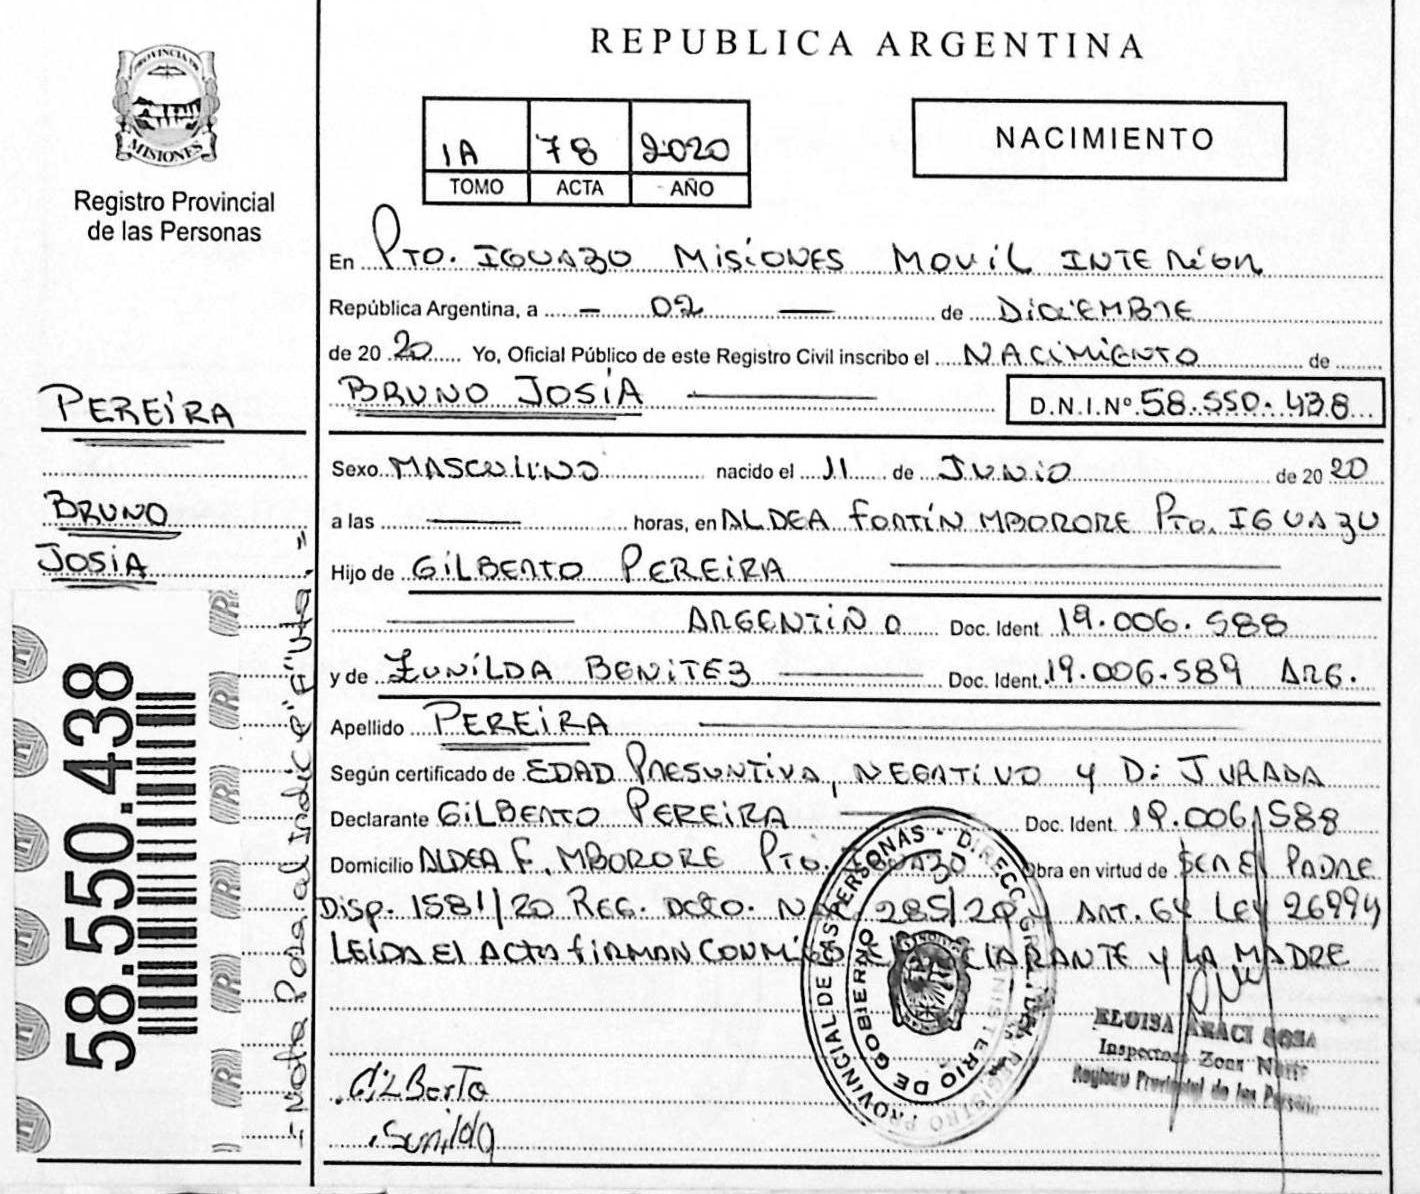 REPUBLICA ARGENTINA
PROVINCIA DE
MISIONES
Registro Provincial
de las Personas
1A 78 2020
TOMO ACTA AÑO
NACIMIENTO
En PTO. IGUAZU MISIONES MOVIL INTERIOR
República Argentina, a - 02 — de DICIEMBRE
de 20 20 Yo, Oficial Público de este Registro Civil inscribo el NACIMIENTO de
BRUNO JOSIA — D.N.I.Nº 58.550.438
PEREIRA
BRUNO
JOSIA
Sexo MASCULINO nacido el 11 de JUNIO de 20 20
a las — horas, en ALDEA FORTÍN MBORORE PTO. IGUAZU
Hijo de GILBERTO PEREIRA —
— ARGENTINO Doc. Ident. 19.006.588
y de ZUNILDA BENITEZ — Doc. Ident. 19.006.589 ARG.
Apellido PEREIRA —
Según certificado de EDAD PRESUNTIVA, NEGATIVO Y D. JURADA
Declarante GILBERTO PEREIRA — Doc. Ident. 19.006.588
Domicilio ALDEA F. MBORORE PTO. IGUAZU Obra en virtud de SER EL PADRE
DISP. 1581/20 REG. DCTO. Nº 285/20 y ART. 64 LEY 26994
LEIDA EL ACTA FIRMAN CONMIGO EL DECLARANTE Y LA MADRE
GILBerTo
Sunilda
ELOISA ARACI SOSA
Inspectora Zona Norte
Registro Provincial de las Personas
DIRECC. GRAL. DEL REGISTRO PROVINCIAL DE LAS PERSONAS
MINISTERIO DE GOBIERNO
58.550.438